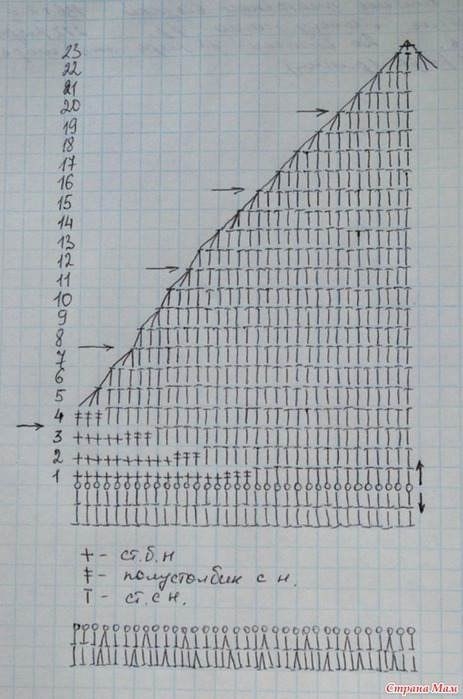 23
22
21
20
19
18
17
16
15
14
13
12
11
10
9
8
7
6
5
4
3
2
1
+ - ст. б. н
‡ - полустолбик с н.
T - ст. с н.
Страна Мам